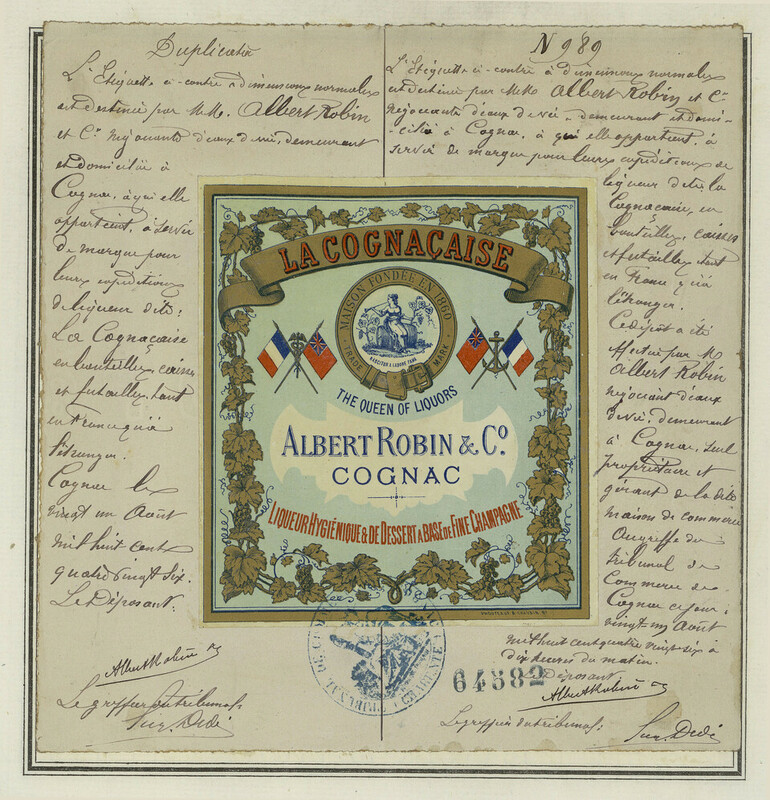 Duplicata
L'Etiquette ci-contre à dimensions normales
est destinée par MM. Albert Robin
et Cⁱᵉ négociants d'eaux de vie, demeurant
et domiciliés à
Cognac, à qui elle
appartient, à servir
de marque pour
leurs expéditions
de liqueur dite:
La Cognaçaise
en bouteilles, caisses
et futailles, tant
en France qu'à
l'étranger.
Cognac le
vingt un Août
mil huit cent
quatre vingt six.
Le Déposant:
Albert Robin
Le greffier du tribunal:
N 989
L'Etiquette ci-contre à dimensions normales
est destinée par MM Albert Robin et Cⁱᵉ
négociants d'eaux de vie, demeurant et domi-
ciliés à Cognac, à qui elle appartient, à
servir de marque pour leurs expéditions de
liqueur dite la
Cognaçaise, en
bouteilles, caisses
et futailles tant
en France qu'à
l'étranger.
Ce dépôt a été
effectué par M
Albert Robin
négociant d'eaux
de vie, demeurant
à Cognac, seul
propriétaire et
gérant de la dite
maison de commerce
Au greffe du
tribunal de
Commerce de
Cognac ce jour
vingt-un Août
mil huit cent quatre vingt-six à
dix heures du matin.
Le déposant
Albert Robin
Le greffier du tribunal:
LA COGNAÇAISE
MAISON FONDÉE EN 1860
TRADE MARK
THE QUEEN OF LIQUORS
ALBERT ROBIN & Cº.
COGNAC
LIQUEUR HYGIÉNIQUE & DE DESSERT A BASE DE FINE CHAMPAGNE
TRIBUNAL DE COMMERCE
CHARENTE
64582